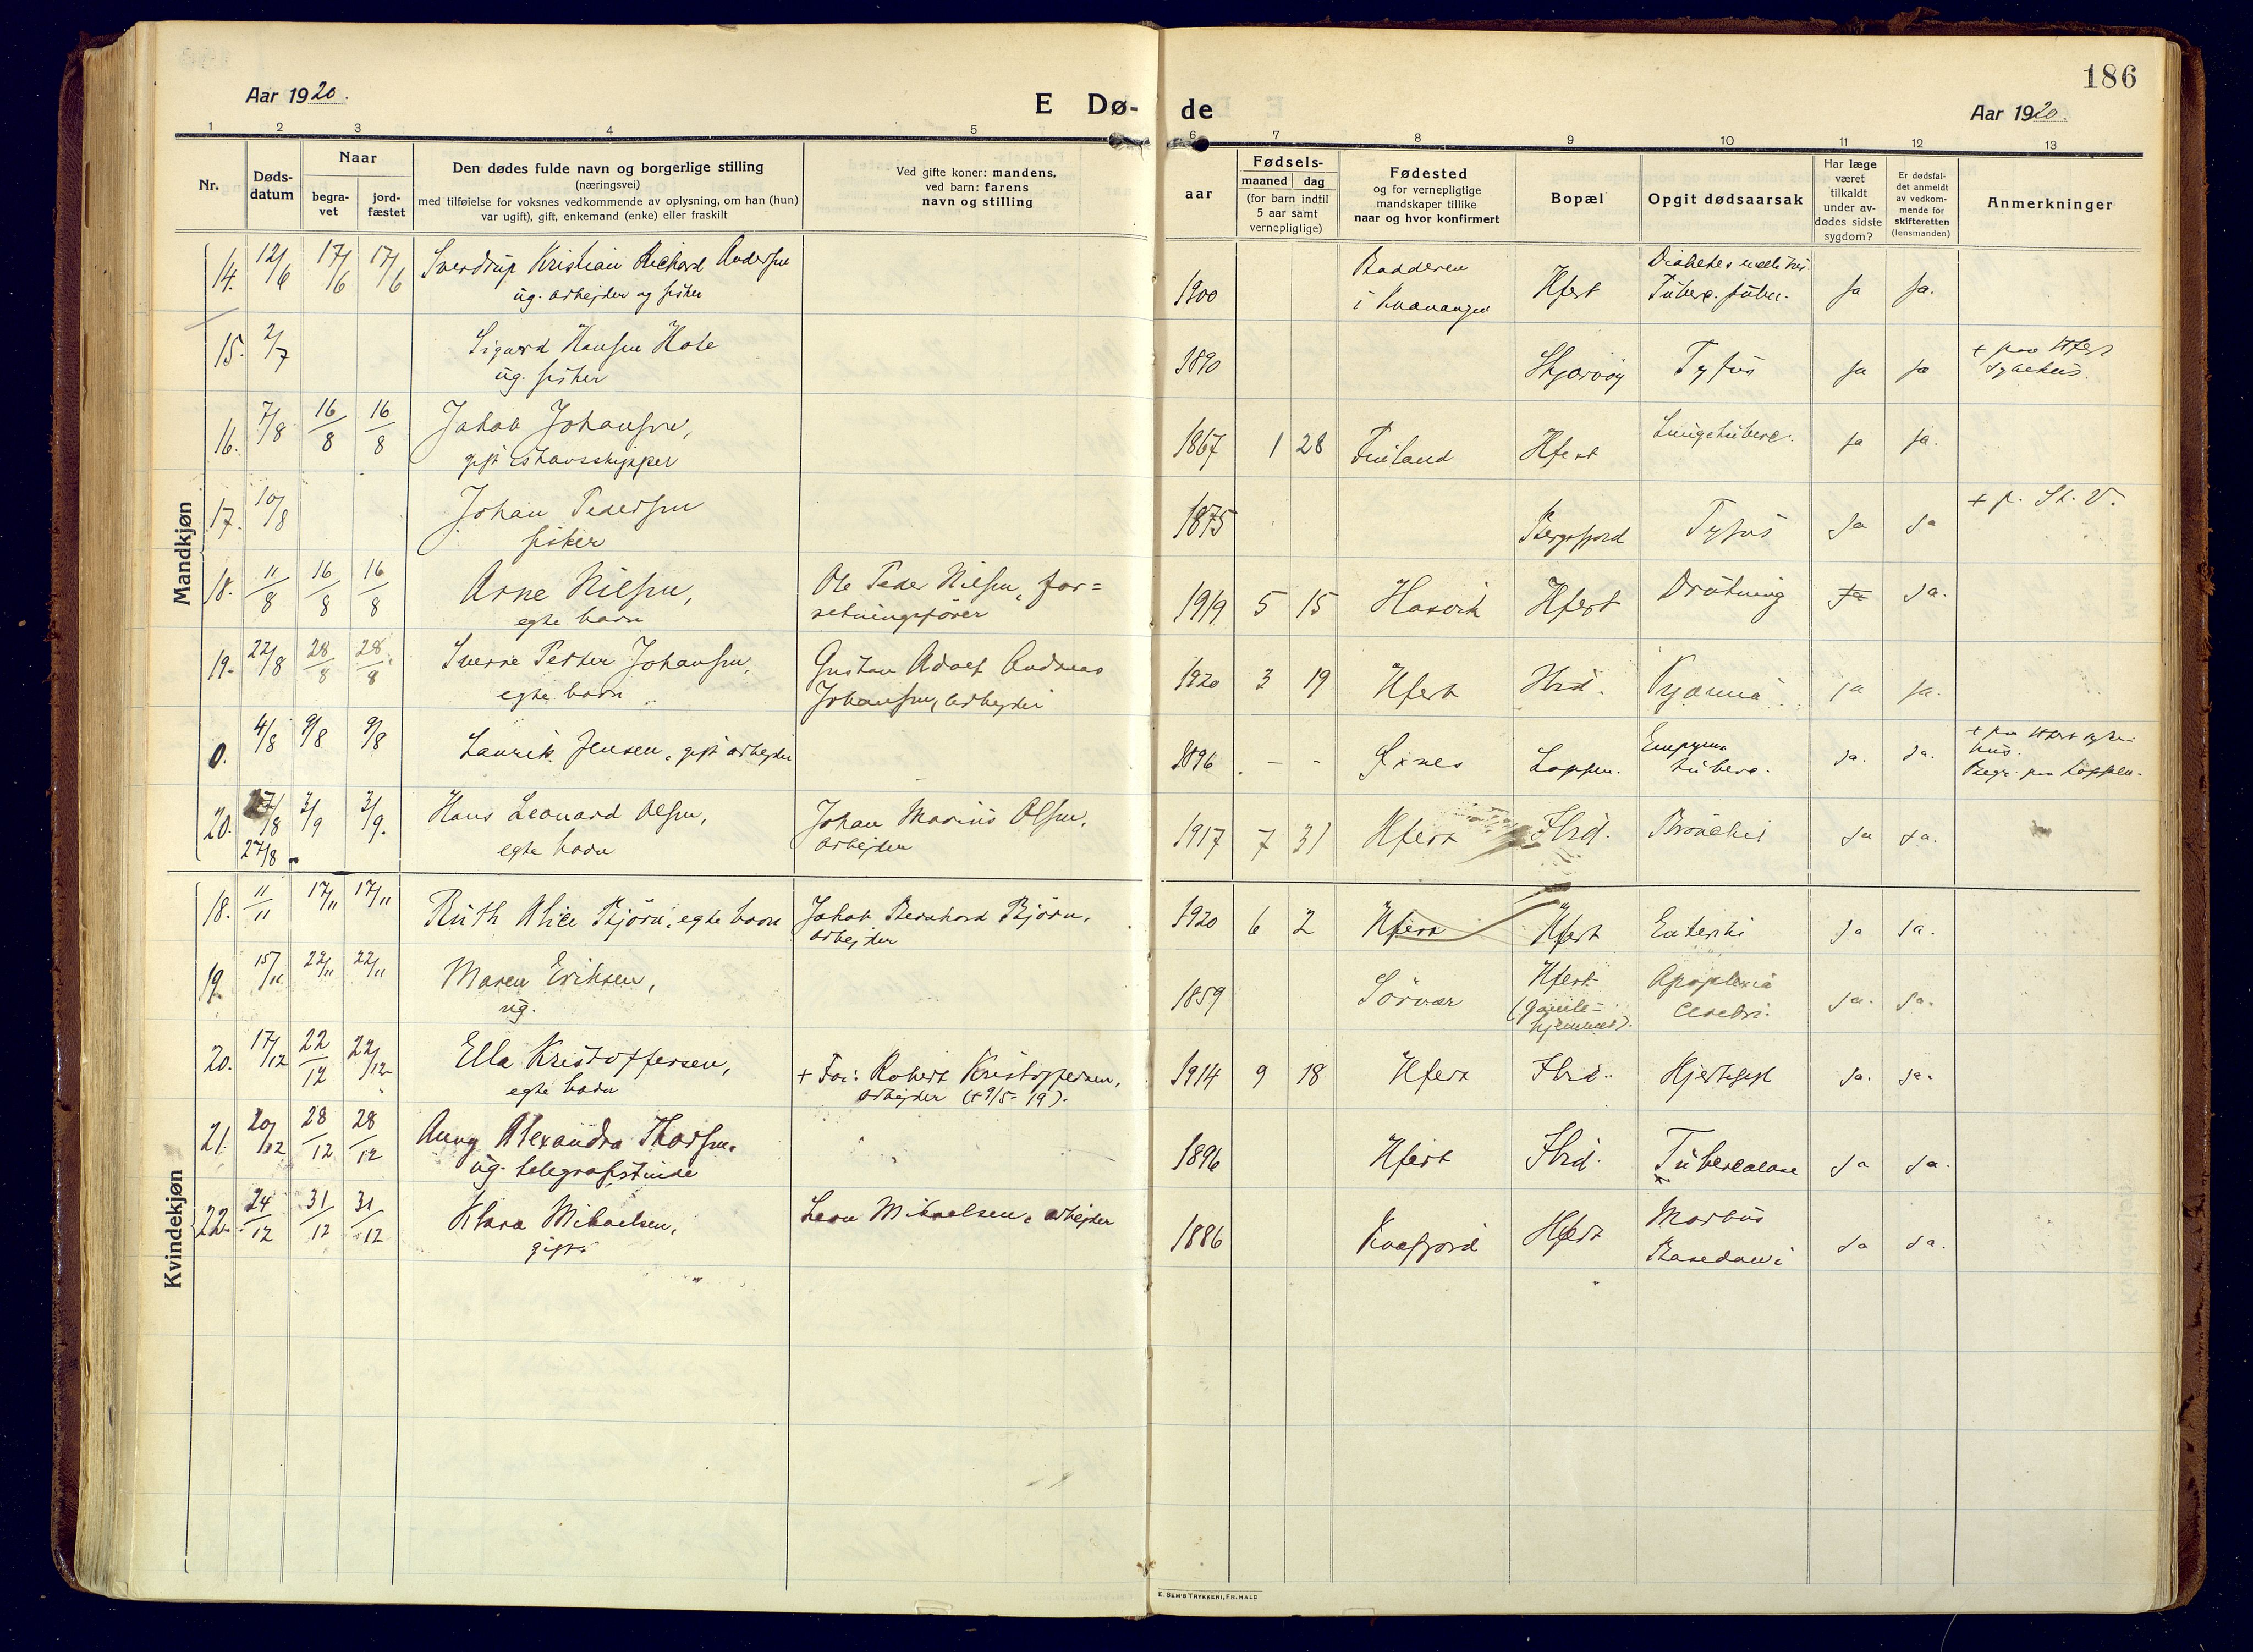 186
Aar 1920.
E Dø- de
Aar 1920.
1 2 3 4 5 6 7 8 9 10 11 12 13
Nr.
Døds-
datum
Naar
begra-
vet
jord-
fæstet
Den dødes fulde navn og borgerlige stilling
(næringsvei)
med tilføielse for voksnes vedkommende av oplysning, om han (hun)
var ugift), gift, enkemand (enke) eller fraskilt
Ved gifte koner: mandens,
ved barn: farens
navn og stilling
aar
Fødsels-
maaned dag
(for barn indtil
5 aar samt
vernepligtige)
Fødested
og for vernepligtige
mandskaper tillike
naar og hvor konfirmert
Bopæl
Opgit dødsaarsak
Har læge
været
tilkaldt
under av-
dødes sidste
sygdom?
Er dødsfal-
det anmeldt
av vedkom-
mende for
skifteretten
(lensmanden)
Anmerkninger
Mandkjøn
14. 12/6 17/6 17/6 Sverdrup Kristian Richard Andersen 1900 Badderen Hfest Diabetes ja ja.
ug. arbejder og fisker i Kvænangen Tuberc.
15. 2/7 Sigurd Hansen 1890 Skjærvøy Tyfus ja ja + paa Hfest
ug. fisker sykehus.
16. 7/8 16/8 16/8 Jakob Johansen, 1867 1 28 Finland Hfest Lungetuberc. ja ja.
gift ishavsskipper
17. 10/8 Johan Pedersen 1875 Bergsfjord Tyfus Ja Ja + p. St. V.
fisker
18. 11/8 16/8 16/8 Arne Nilsen, Ole Peder Nilsen, for= 1919 5 15 Hasvik Hfest Drukning Ja Ja.
egte barn retningsfører
19. 22/8 28/8 28/8 Sverre Petter Johansen, Gustav Adolf Andreas 1920 3 19 Hfest Ibid. Pyæmia ja ja.
egte barn Johansen, arbejder
0. 4/8 9/8 9/8 Laurik Jensen, gift arbejder 1896 - - Øxnes Loppen. Empyema Ja. Ja. + paa Hfest syke-
tuberc. hus.
Begr. paa Loppen.
20. 27/8 3/9 3/9. Hans Leonard Olsen, Johan Marius Olsen, 1917 7 31 Hfest Ibid. Bronchit Ja Ja.
27/8 egte barn arbejder
Kvindekjøn
18. 11/11 17/11 17/11 Ruth Alice Bjørn, egte barn Jakob Bernhard Bjørn, 1920 6 2 Hfest Hfest Enteriti Ja Ja.
arbejder
19. 15/11 22/11 22/11 Maren Eriksen, 1859 Sørvær Hfest Apoplexia Ja. Ja.
ug. (Gamle- cerebri.
hjemmet).
20. 17/12 22/12 22/12 Ella Kristoffersen, + Far: Robert Kristoffersen, 1914 9 18 Hfest Ibid. Hjertefejl Ja. Ja.
egte barn arbejder (+ 9/5- 19).
21. 20/12 28/12 28/12 Anny Alexandra Thorsen. 1896 Hfest Ibid. Tuberculose Ja Ja.
ug. telegrafistinde
22. 24/12 31/12 31/12 Klara Mikaelsen, Leon Mikaelsen, arbejder 1886 Kvæfjord Hfest Morbus Ja Ja.
gift. Basedowi
E. SEM'S TRYKKERI, FR.HALD